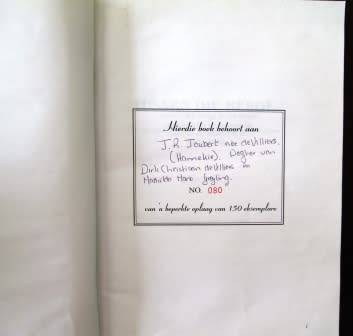 Hierdie boek behoort aan
J.R Joubert nee deVilliers.
(Hannekie). Dogter van
Dirk Christiaan deVilliers en
NO. 080
van 'n beperkte oplaag van 150 eksemplare